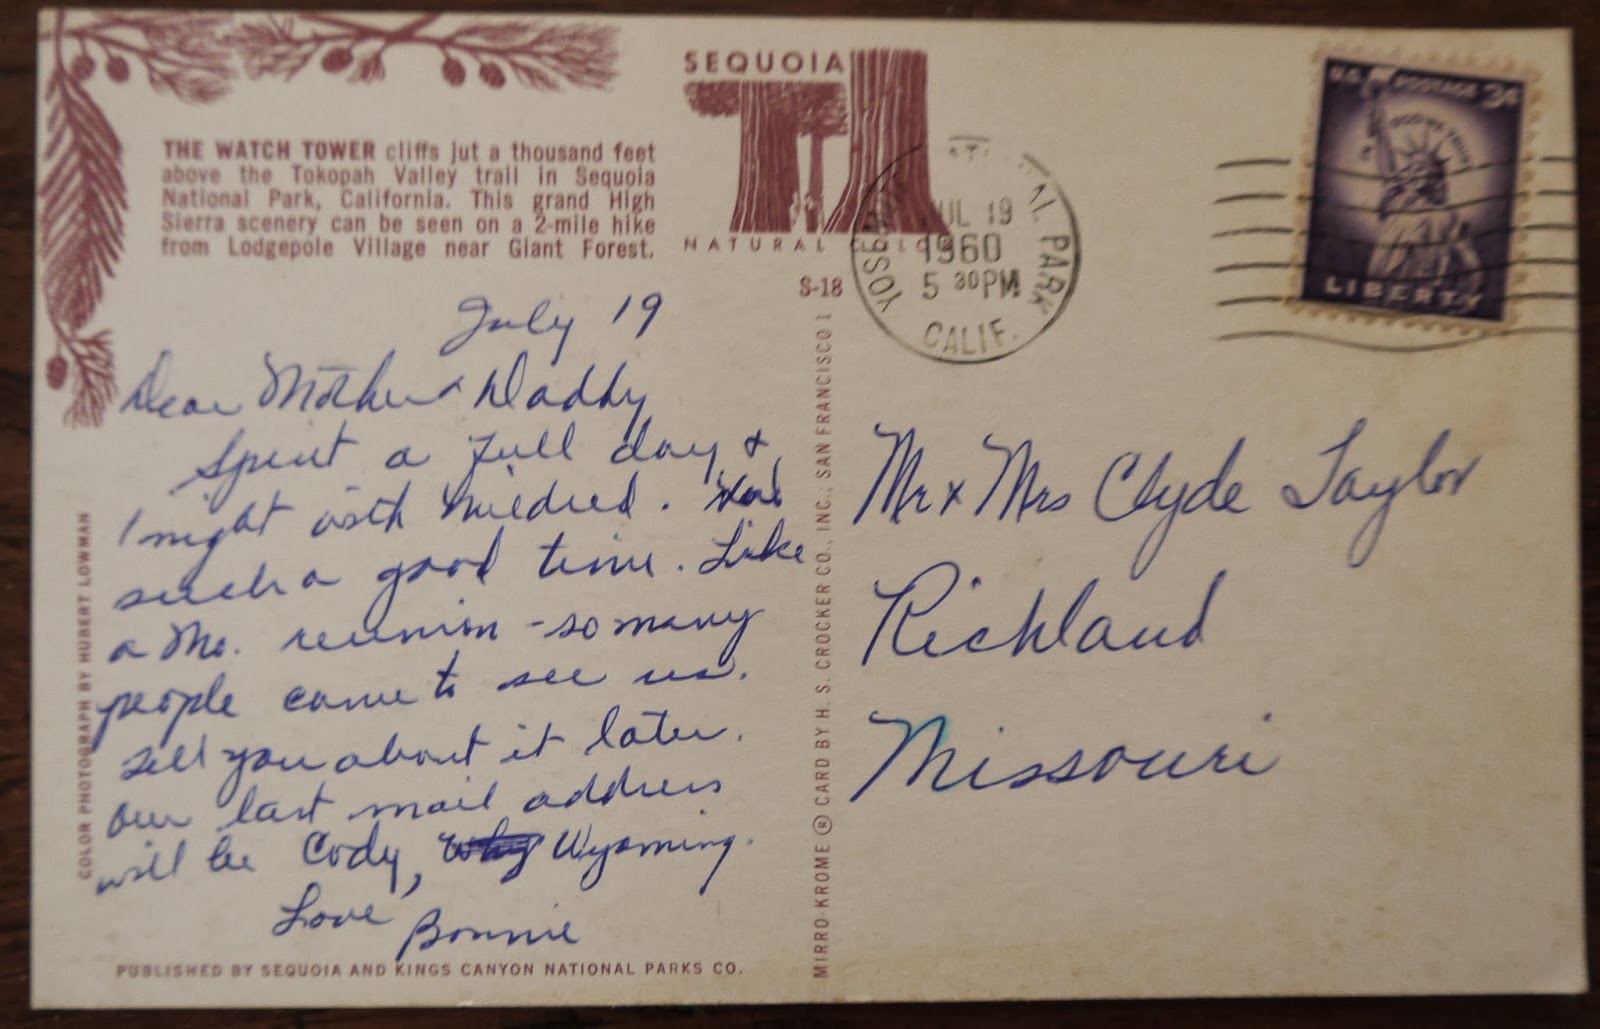 SEQUOIA
NATURAL COLOR
THE WATCH TOWER cliffs jut a thousand feet
above the Tokopah Valley trail in Sequoia
National Park, California. This grand High
Sierra scenery can be seen on a 2-mile hike
from Lodgepole Village near Giant Forest.
S-18
YOSEMITE NATIONAL PARK
JUL 19
1960
5 30 PM
CALIF.
U.S. POSTAGE 3¢
IN GOD WE TRUST
LIBERTY
July 19
Dear Mother & Daddy
Spent a full day &
1 night with Mildred. Had
such a good time. Like
a Mo. reunion - so many
people came to see us.
Tell you about it later.
Our last mail address
will be Cody, Wyoming.
Love,
Bonnie
Mr & Mrs Clyde Taylor
Richland
Missouri
COLOR PHOTOGRAPH BY HUBERT LOWMAN
MIRRO-KROME ® CARD BY H. S. CROCKER CO., INC., SAN FRANCISCO 1
PUBLISHED BY SEQUOIA AND KINGS CANYON NATIONAL PARKS CO.